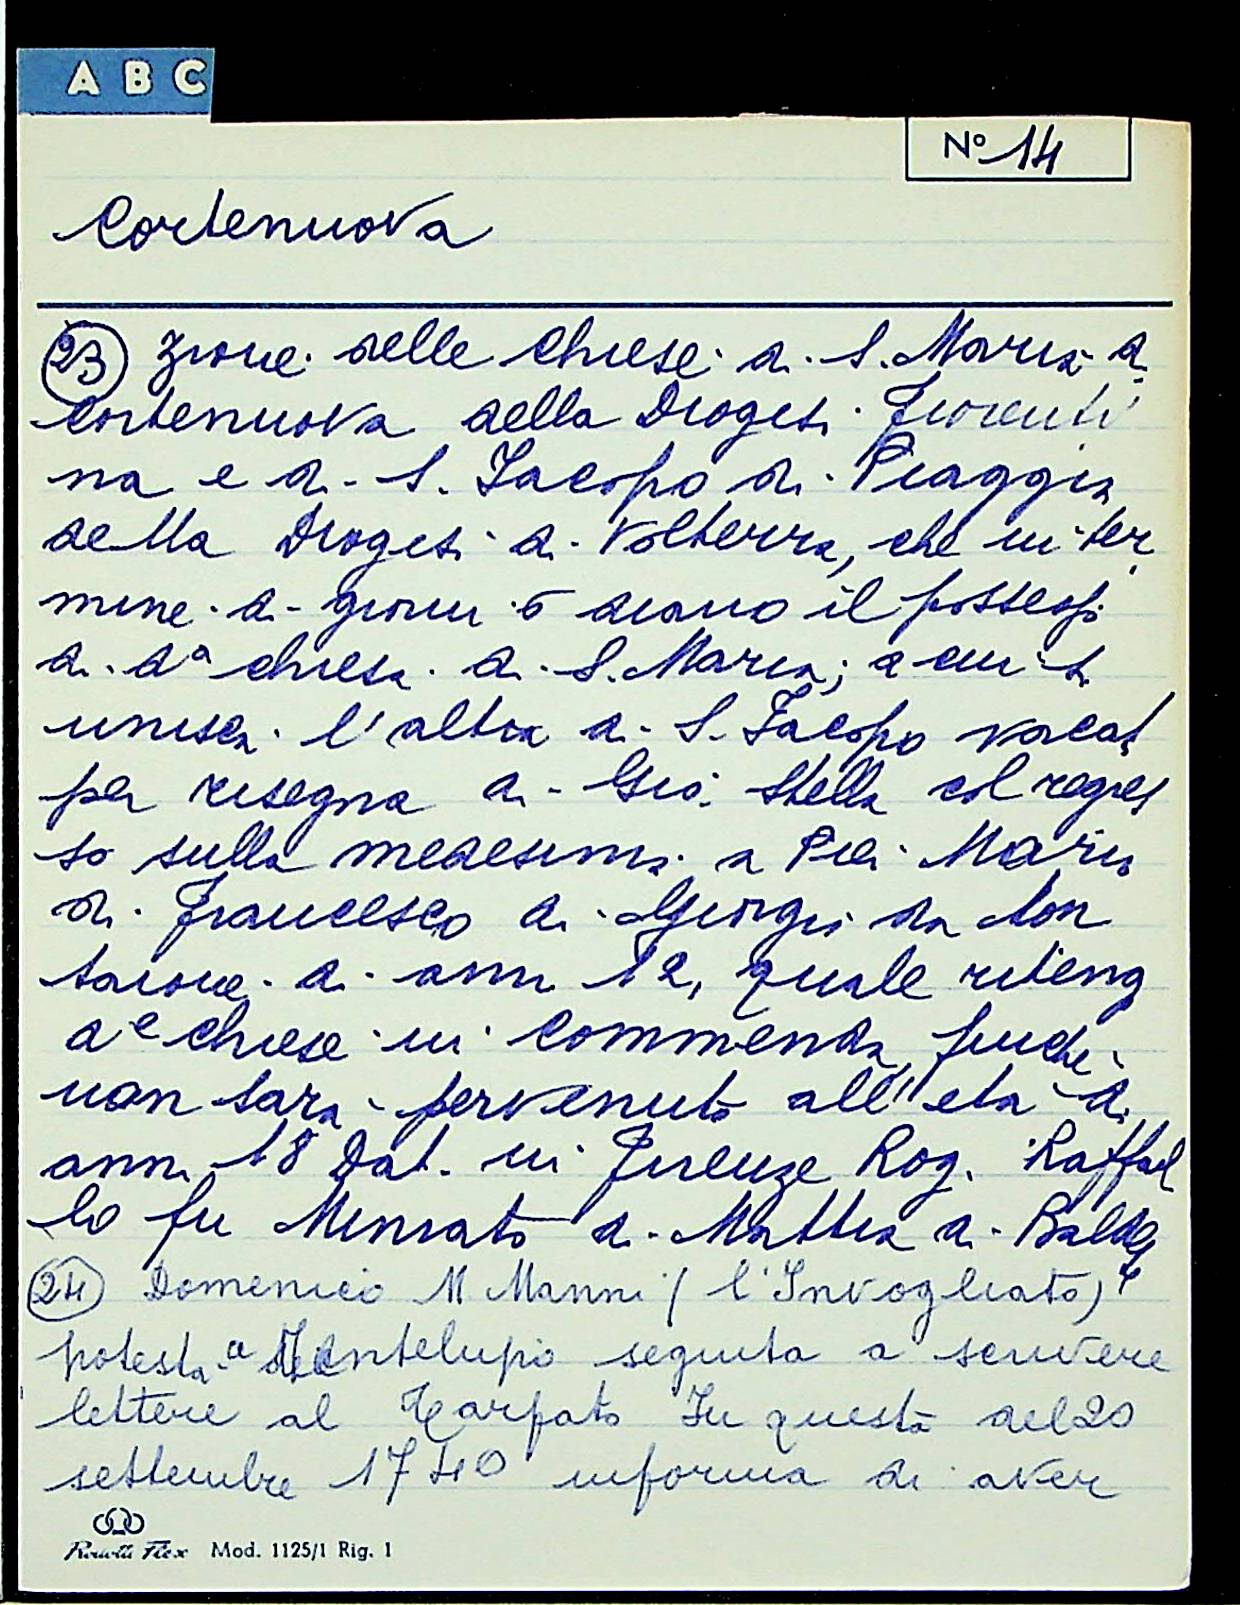 A B C
Nº 14
Cortenuova
23 zione delle Chiese di S. Maria a
Cortenuova della Diogesi Fiorenti
na e di S. Iacopo di Piaggia
della Diogesi di Volterra, che in ter
mine di giorni 6 diano il possesso
di da chiesa di S. Maria; a cui si
unisca l'altra di S. Iacopo vacat
per risegna di Gio. Stella col regres
so sulla medesima a Pier Maria
di Francesco di Giorgio da Mon
taione di anni 12, quale riteng
de chiese in Commenda, finche
non sara pervenuto all'eta di
anni 18 Dat. in Firenze Rog. Raffael
lo fu Miniato di Mattia di Baldo
24 Domenico M Manni (l'Invogliato)
potesta a Montelupo seguita a scrivere
lettere al Tarpato In questa del 20
settembre 1740 informa di aver
Mod. 1125/1 Rig. 1